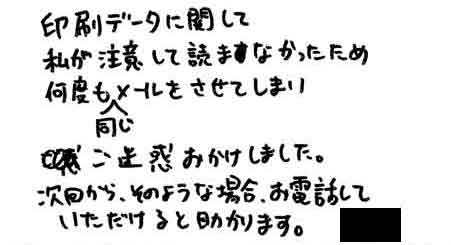 印刷データに関して
私が注意して読まなかったため
何度も同じメールをさせてしまい
ご迷惑おかけしました。
次回から、そのような場合、お電話して
いただけると助かります。